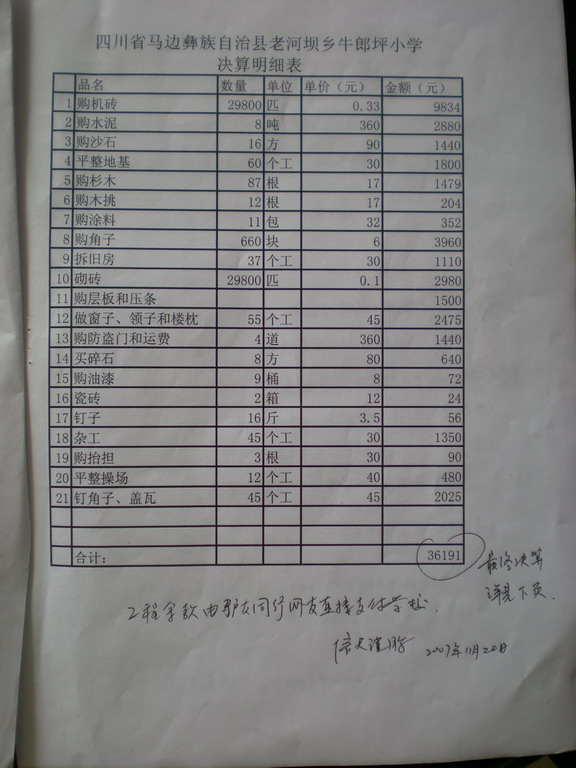 四川省马边彝族自治县老河坝乡牛郎坪小学
决算明细表
品名 数量 单位 单价（元） 金额（元）
1 购机砖 29800 匹 0.33 9834
2 购水泥 8 吨 360 2880
3 购沙石 16 方 90 1440
4 平整地基 60 个工 30 1800
5 购杉木 87 根 17 1479
6 购木挑 12 根 17 204
7 购涂料 11 包 32 352
8 购角子 660 块 6 3960
9 拆旧房 37 个工 30 1110
10 砌砖 29800 匹 0.1 2980
11 购层板和压条 1500
12 做窗子、领子和楼枕 55 个工 45 2475
13 购防盗门和运费 4 道 360 1440
14 买碎石 8 方 80 640
15 购油漆 9 桶 8 72
16 瓷砖 2 箱 12 24
17 钉子 16 斤 3.5 56
18 杂工 45 个工 30 1350
19 购抬担 3 根 30 90
20 平整操场 12 个工 40 480
21 钉角子、盖瓦 45 个工 45 2025
合计： 36191
最终决算
详见下页.
工程余款由驴友同行网友直接支付学校.
2007年11月20日